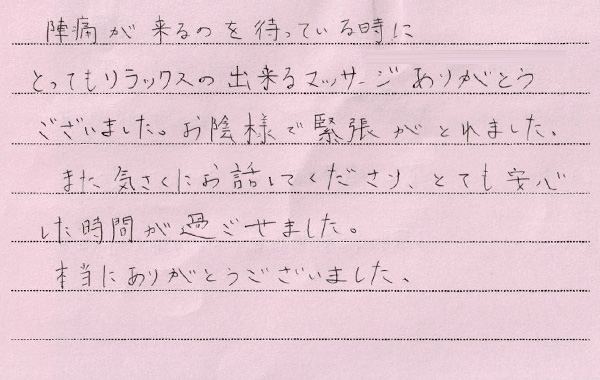 陣痛が来るのを待っている時に
とってもリラックスの出来るマッサージありがとう
ございました。お陰様で緊張がとれました。
また気さくにお話してくださり、とても安心
した時間が過ごせました。
本当にありがとうございました。